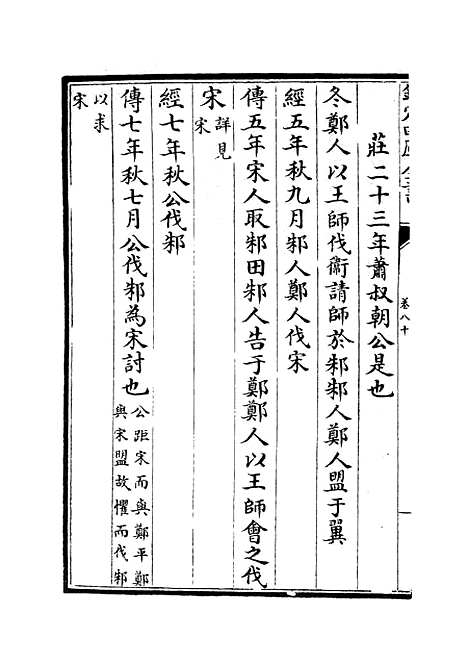 卷八十
莊二十三年蕭叔朝公是也
冬鄭人以王師伐衛請師於邾邾人鄭人盟于翼
經五年秋九月邾人鄭人伐宋
傳五年宋人取邾田邾人告于鄭鄭人以王師會之伐
宋詳見宋
經七年秋公伐邾
傳七年秋七月公伐邾為宋討也公距宋而與鄭平鄭與宋盟故懼而伐邾
以求宋